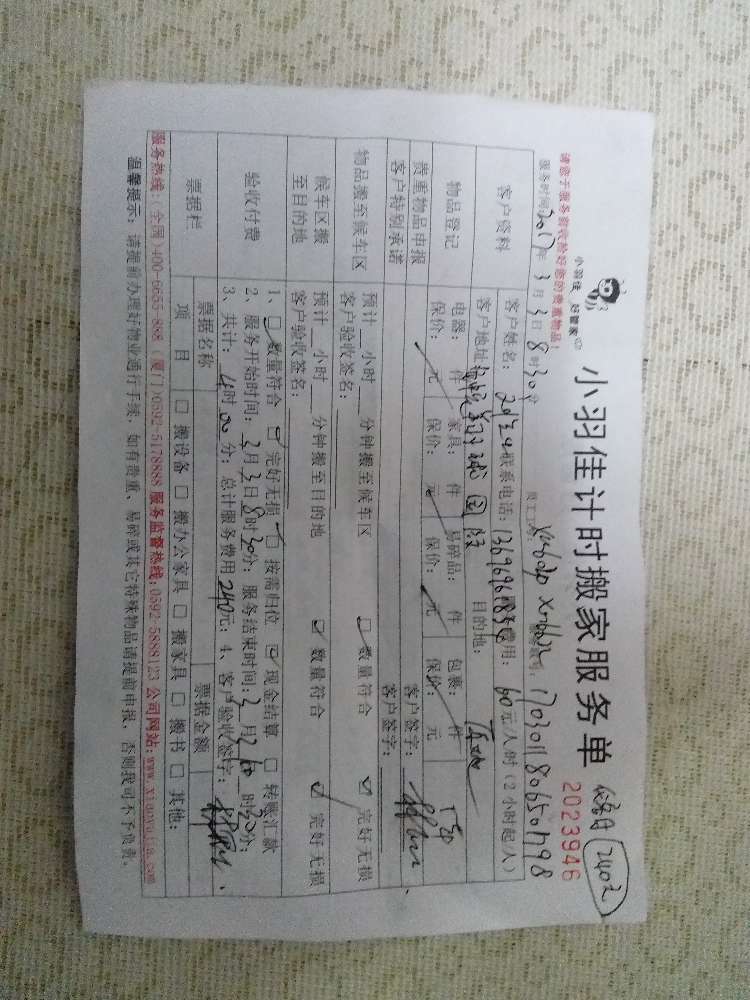 小羽佳 好管家
小羽佳计时搬家服务单
2402
2023946
请您于服务前收拾好您的贵重物品！
服务时间：2017年3月3日8时30分 员工工号： 170301180650798
客户资料
客户姓名： 联系电话： 服务费用：60元/人时（2小时起/人）
客户地址： 目的地：
物品登记
电器： 件 家具： 件 易碎品： 件 包裹： 件
保价： 元 保价： 元 保价： 元 保价： 元
贵重物品申报
客户签字：
客户特别承诺
客户签字：
物品搬至候车区
预计 小时 分钟搬至候车区 □数量符合 ☑完好无损
客户验收签名：
候车区搬至目的地
预计 小时 分钟搬至目的地 ☑数量符合 ☑完好无损
客户验收签名：
验收付费
1、☑数量符合 ☑完好无损 ☑按需归位 ☑现金结算 □转账汇款
2、服务开始时间：3月3日8时30分；服务结束时间：3月3日 时30分；
3、共计：4时00分；总计服务费用240元；4、客户验收签字：
票据栏
票据名称 票据金额
项目 □搬设备 □搬办公家具 □搬家具 □搬书 □其他：
服务热线：（全国）400-6655-888 （厦门）0592-5178888 服务监督热线：0592-5888123 公司网站：www.xiaoyujia.com
温馨提示：请提前办理好物业通行手续，如有贵重、易碎或其它特殊物品请提前申报，否则我司不予负责。